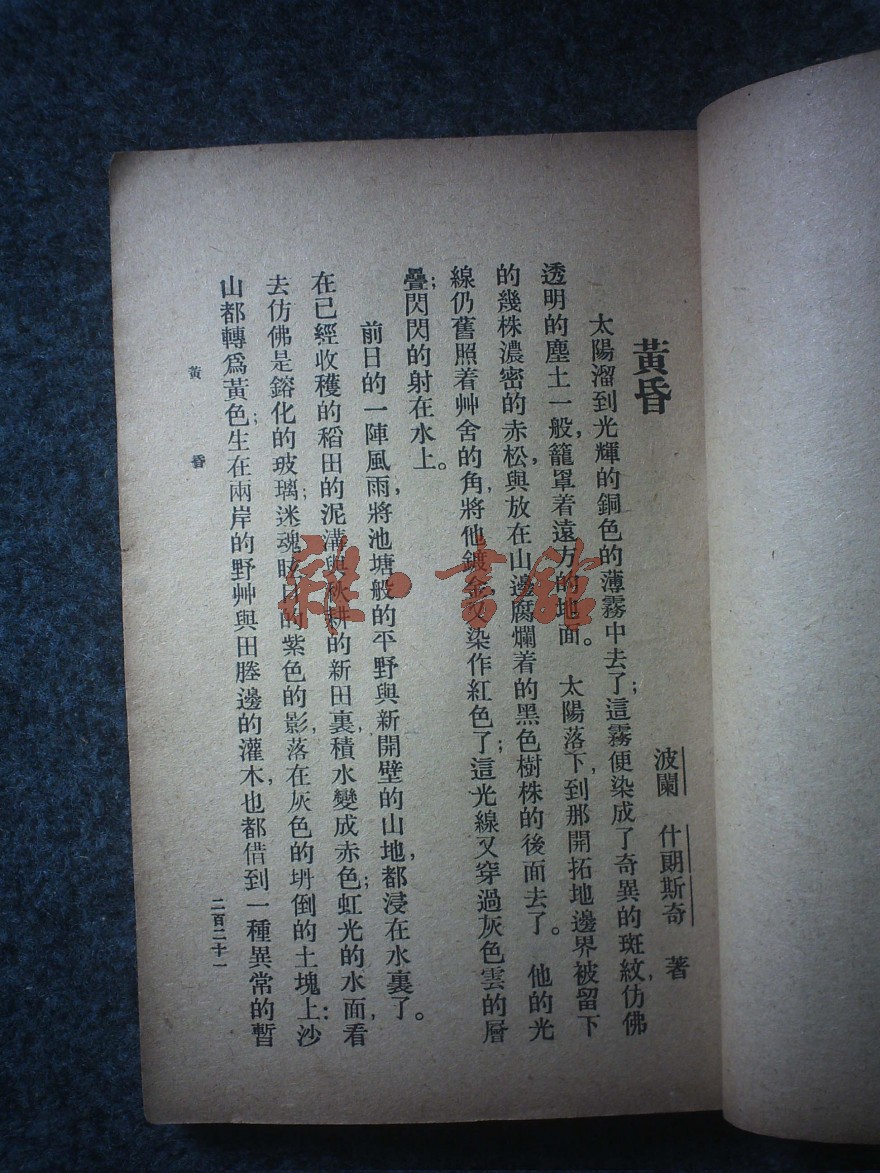 黃昏
波闌 什朗斯奇 著
太陽溜到光輝的銅色的薄霧中去了；這霧便染成了奇異的斑紋，仿佛
透明的塵土一般，籠罩着遠方的地面。太陽落下，到那開拓地邊界被留下
的幾株濃密的赤松，與放在山邊腐爛着的黑色樹株的後面去了。他的光
線仍舊照着艸舍的角，將他鍍金又染作紅色了；這光線又穿過灰色雲的層
疊；閃閃的射在水上。
前日的一陣風雨，將池塘般的平野與新開壁的山地，都浸在水裏了。
在已經收穫的稻田的泥溝與秋耕的新田裏，積水變成赤色；虹光的水面，看
去仿佛是鎔化的玻璃；迷魂眩目的紫色的影，落在灰色的坍倒的土塊上：沙
山都轉爲黃色；生在兩岸的野艸與田塍邊的灌木，也都借到一種異常的暫
黃昏
二百二十一
雜·書館